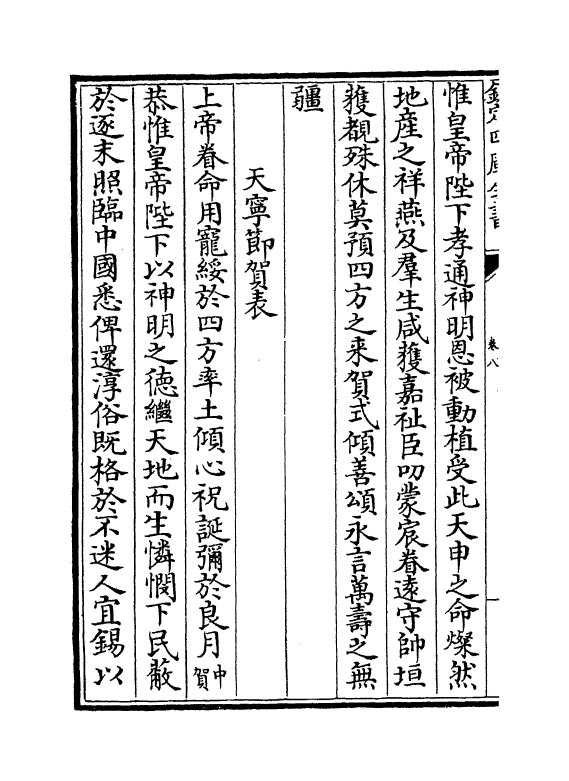 欽定四庫全書
卷八
惟皇帝陛下孝通神明恩被動植受此天申之命燦然
地產之祥燕及羣生咸獲嘉祉臣叨蒙宸眷遠守帥垣
獲覩殊休莫預四方之来賀式傾善頌永言萬壽之無
疆
天寧節賀表
上帝眷命用寵綏於四方率土傾心祝誕彌於良月中賀
恭惟皇帝陛下以神明之德繼天地而生憐憫下民散
於逐末照臨中國悉俾還淳俗既格於不迷人宜錫以